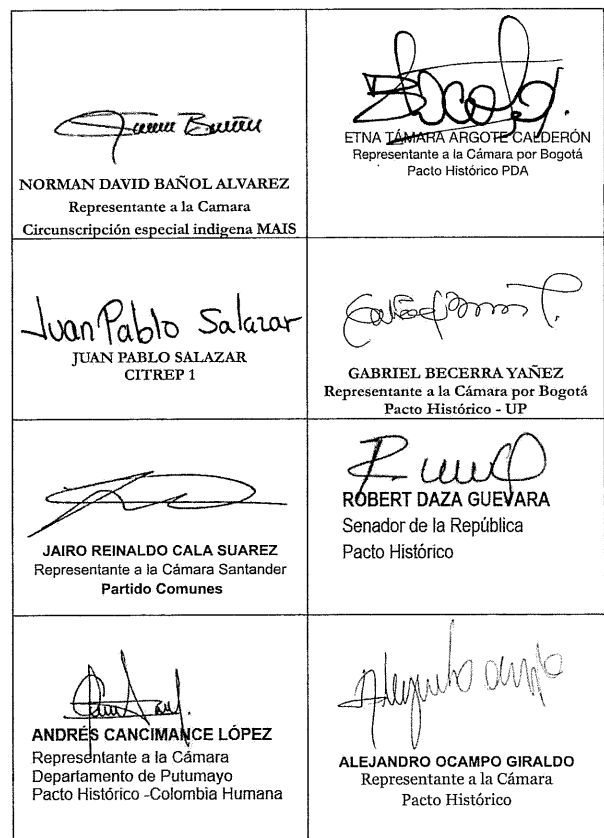 NORMAN DAVID BAÑOL ALVAREZ
Representante a la Camara
Circunscripción especial indigena MAIS
ETNA TÁMARA ARGOTE CALDERÓN
Representante a la Cámara por Bogotá
Pacto Histórico PDA
Juan Pablo Salazar
JUAN PABLO SALAZAR
CITREP 1
GABRIEL BECERRA YAÑEZ
Representante a la Cámara por Bogotá
Pacto Histórico - UP
JAIRO REINALDO CALA SUAREZ
Representante a la Cámara Santander
Partido Comunes
ROBERT DAZA GUEVARA
Senador de la República
Pacto Histórico
ANDRÉS CANCIMANCE LÓPEZ
Representante a la Cámara
Departamento de Putumayo
Pacto Histórico -Colombia Humana
Alejandro Ocampo
ALEJANDRO OCAMPO GIRALDO
Representante a la Cámara
Pacto Histórico